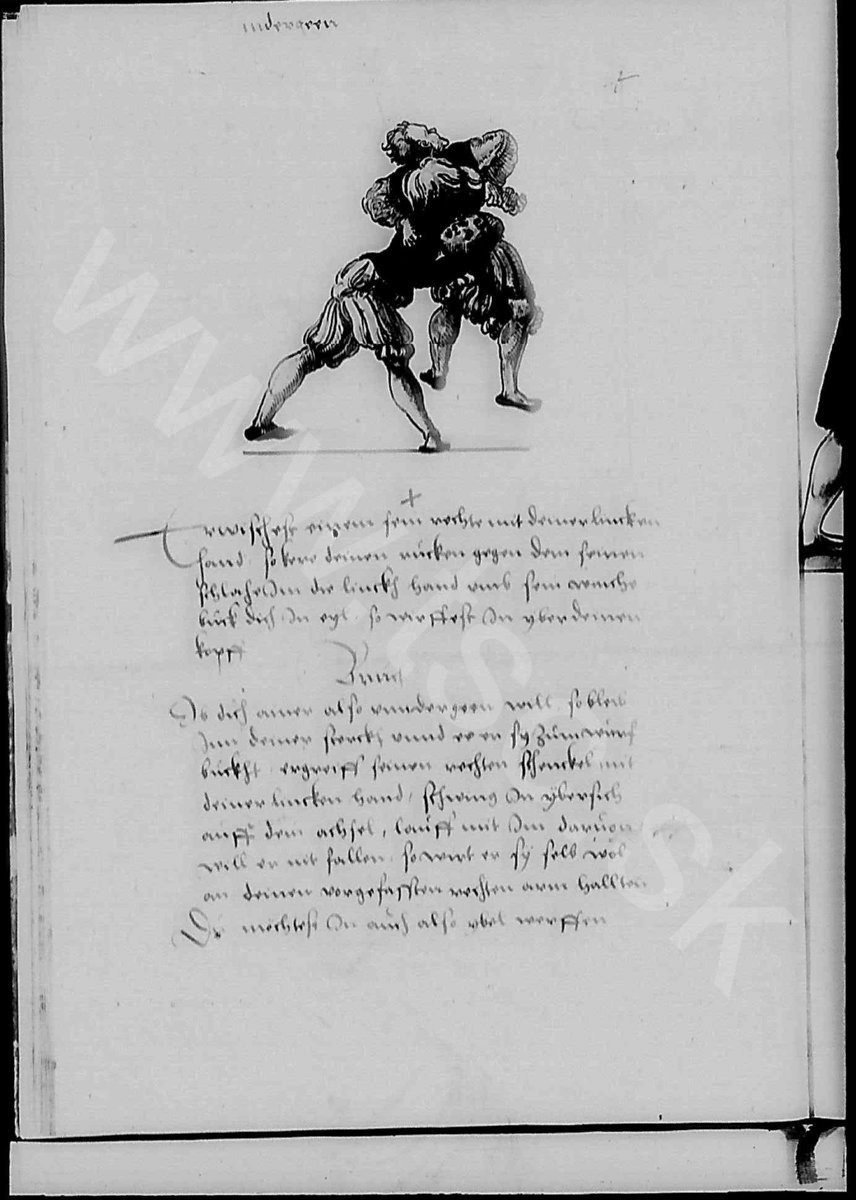 undergeen
Erwischest einem sein rechte mit deiner lincken
hand so kere deinen rücken gegen dem seinen
schlahe Im die linckh hand umb sein waiche
bück dich In eyl so wirffest In yber deinen
kopff
Bruch
Ob dich ainer also undergeen will so bleib
Inn deiner sterckh unnd er sy zum wurf
bückht ergreiff seinen rechten schenckel mit
deiner lincken hand, schwing In ybersich
auff dem achsel, lauff mit Im daruon
will er nit fallen so wirt er sy selb wol
an deinen vorgefassten rechten arm hallten
Du möchtest In auch also ybel werffen
www. .sk